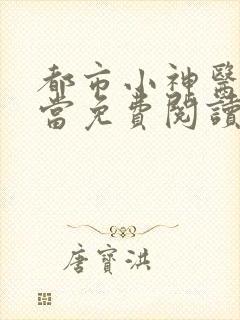 都市小神醫
當免費閱讀
唐寶洪